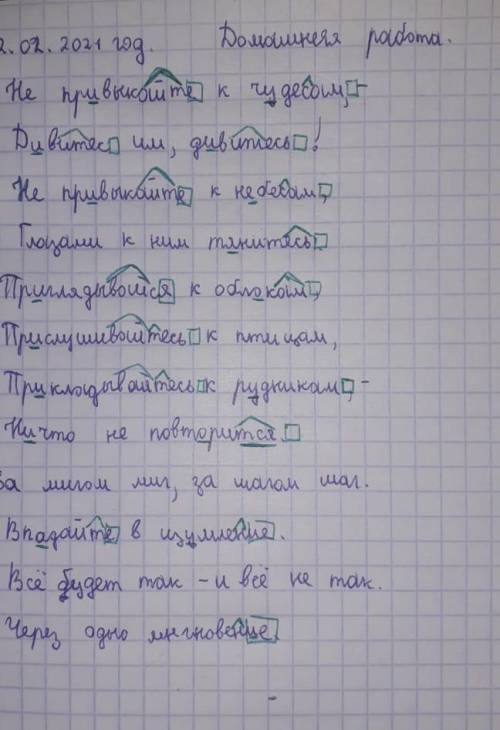 2.02.2021 год. Домашняя работа.
Не привыкайте к чудесам, –
Дивитесь им, дивитесь!
Не привыкайте к небесам,
Глазами к ним тянитесь.
Приглядывайся к облакам,
Прислушивайтесь к птицам,
Прикладывайтесь к рудникам, –
Ничто не повторится.
За мигом миг, за шагом шаг.
Впадайте в изумление.
Всё будет так – и всё не так.
Через одно мгновение.